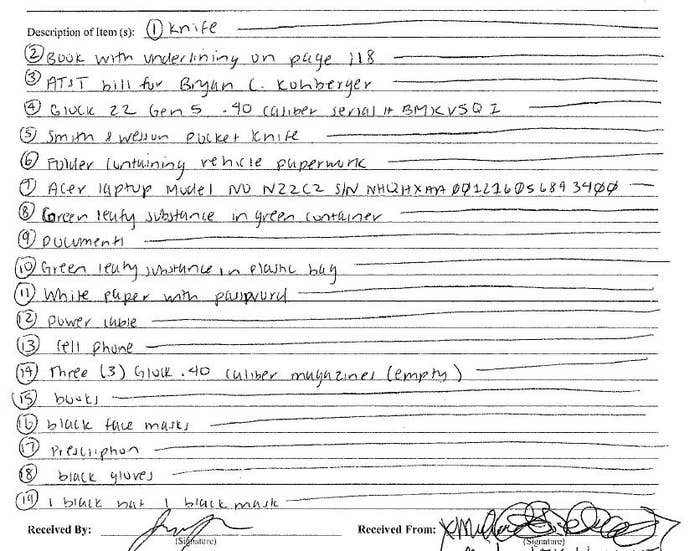 Description of Item (s): ① Knife
② Book with underlining on page 118
③ AT&T bill for Bryan C. Kohberger
④ Glock 22 Gen 5 .40 caliber serial # BMXV592
⑤ Smith & Wesson pocket knife
⑥ Folder containing vehicle paperwork
⑦ Acer laptop Model NO N22C2 S/N
⑧ Green leafy substance in green container
⑨ Documents
⑩ Green leafy substance in plastic bag
⑪ White paper with password
⑫ Power cable
⑬ Cell phone
⑭ Three (3) Glock .40 caliber magazines (empty)
⑮ books
⑯ black face masks
⑰ Prescription
⑱ black gloves
⑲ 1 black hat 1 black mask
Received By: Received From:
(Signature) (Signature)